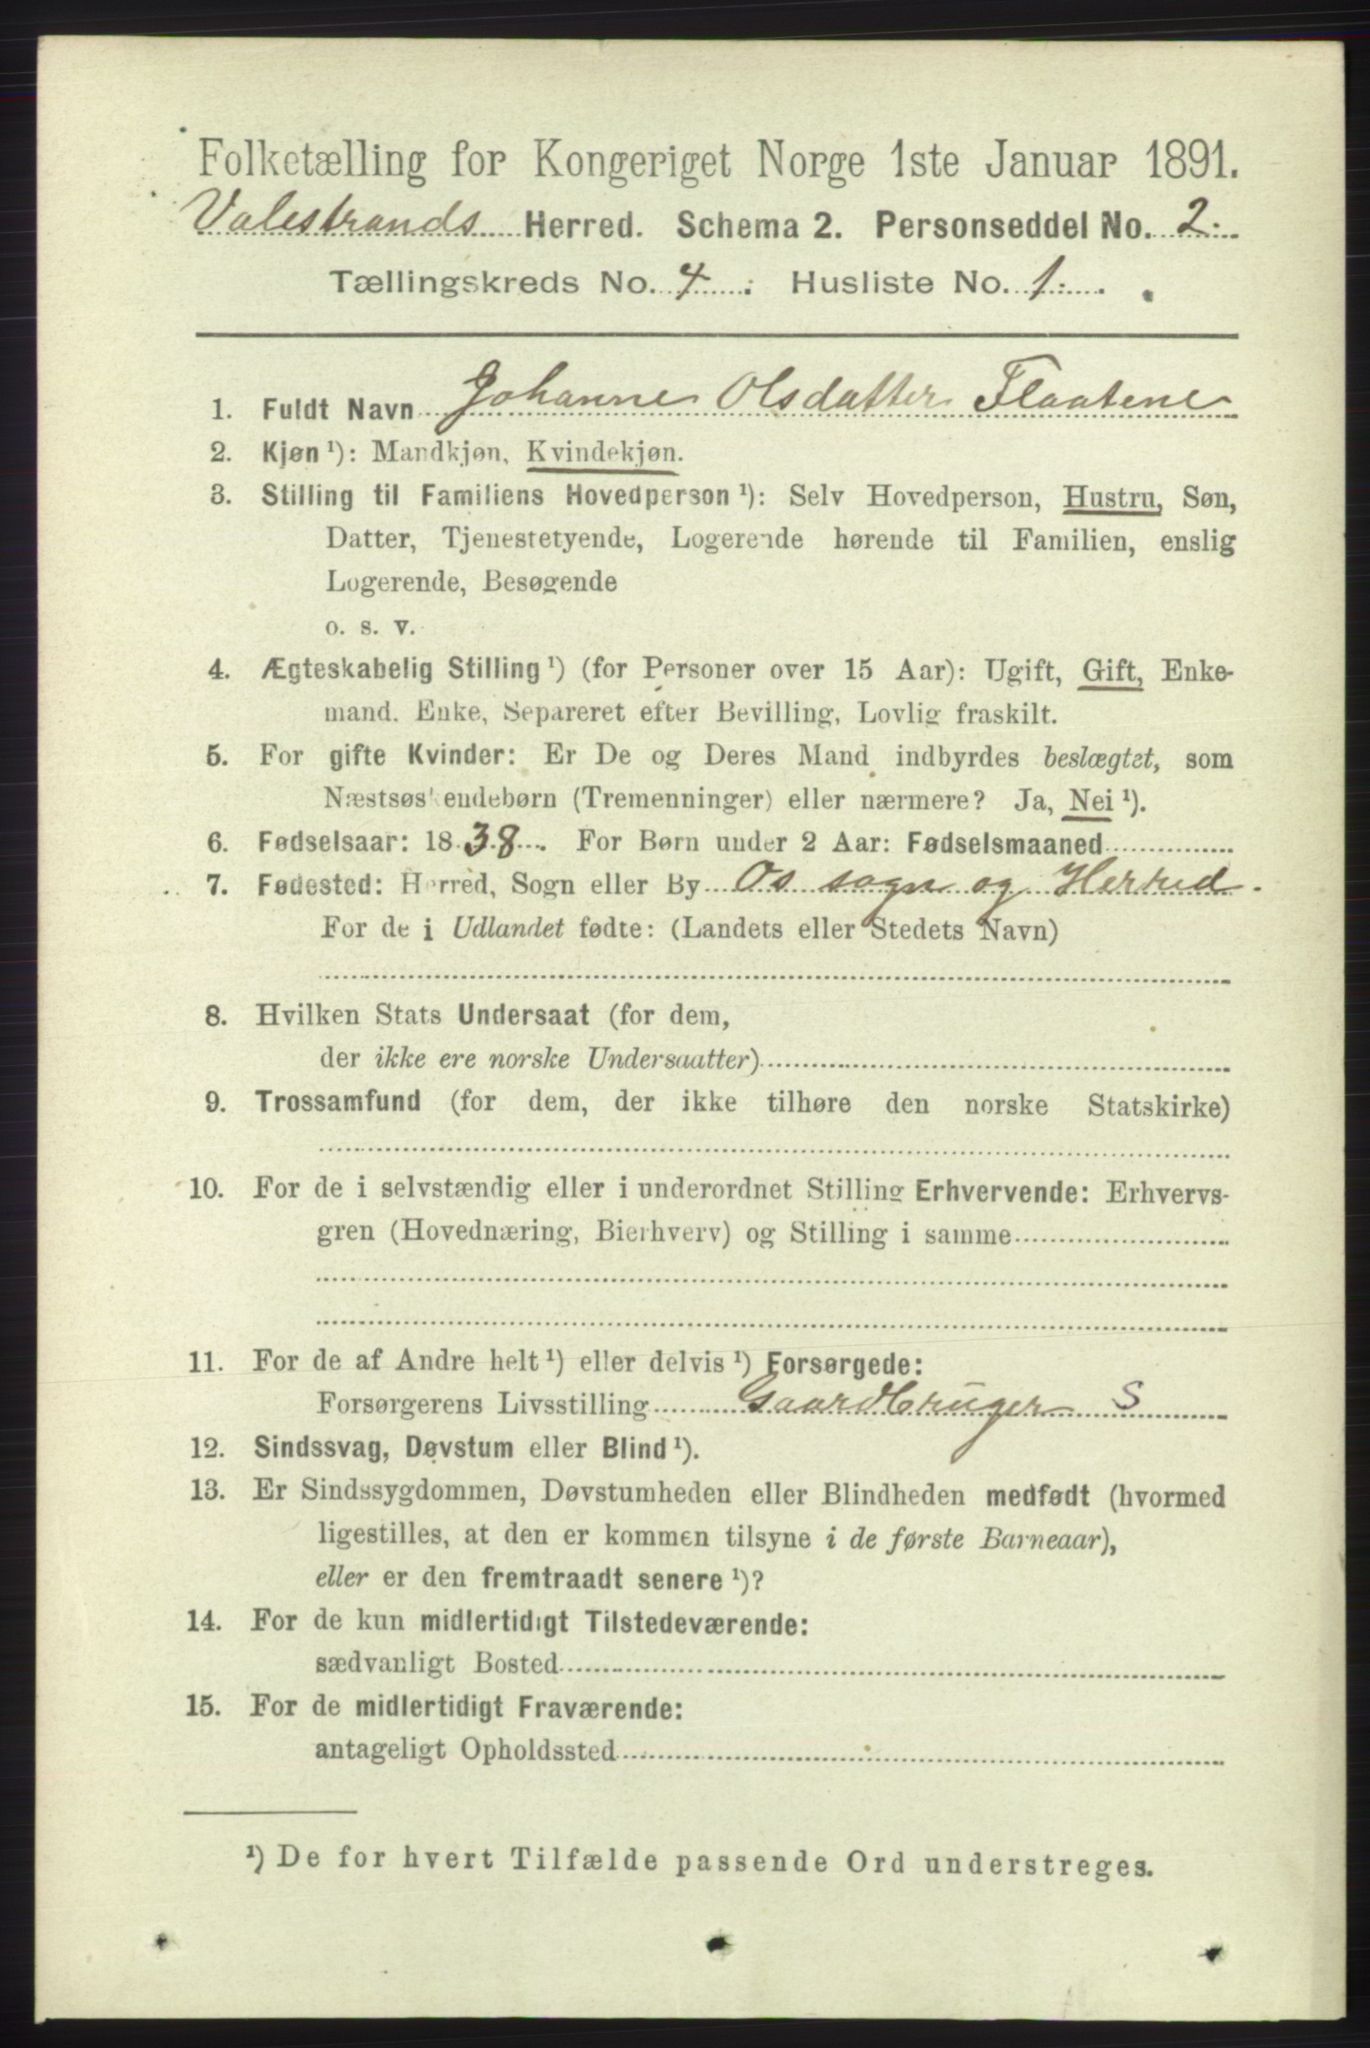 Folketælling for Kongeriget Norge 1ste Januar 1891.
Valestrands Herred. Schema 2. Personseddel No. 2.
Tællingskreds No. 4. Husliste No. 1.
1. Fuldt Navn Johanne Olsdatter Flaatene
2. Kjøn ¹): Mandkjøn, Kvindekjøn.
3. Stilling til Familiens Hovedperson ¹): Selv Hovedperson, Hustru, Søn,
Datter, Tjenestetyende, Logerende hørende til Familien, enslig
Logerende, Besøgende
o. s. v.
4. Ægteskabelig Stilling ¹) (for Personer over 15 Aar): Ugift, Gift, Enke-
mand, Enke, Separeret efter Bevilling, Lovlig fraskilt.
5. For gifte Kvinder: Er De og Deres Mand indbyrdes beslægtet, som
Næstsøskendebørn (Tremenninger) eller nærmere? Ja, Nei ¹).
6. Fødselsaar: 1838. For Børn under 2 Aar: Fødselsmaaned
7. Fødested: Herred, Sogn eller By Os sogn og Herred.
For de i Udlandet fødte: (Landets eller Stedets Navn)
8. Hvilken Stats Undersaat (for dem,
der ikke ere norske Undersaatter)
9. Trossamfund (for dem, der ikke tilhøre den norske Statskirke)
10. For de i selvstændig eller i underordnet Stilling Erhvervende: Erhvervs-
gren (Hovednæring, Bierhverv) og Stilling i samme
11. For de af Andre helt ¹) eller delvis ¹) Forsørgede:
Forsørgerens Livsstilling Gaardbruger S
12. Sindssvag, Døvstum eller Blind ¹).
13. Er Sindssygdommen, Døvstumheden eller Blindheden medfødt (hvormed
ligestilles, at den er kommen tilsyne i de første Barneaar),
eller er den fremtraadt senere ¹)?
14. For de kun midlertidigt Tilstedeværende:
sædvanligt Bosted
15. For de midlertidigt Fraværende:
antageligt Opholdssted
¹) De for hvert Tilfælde passende Ord understreges.